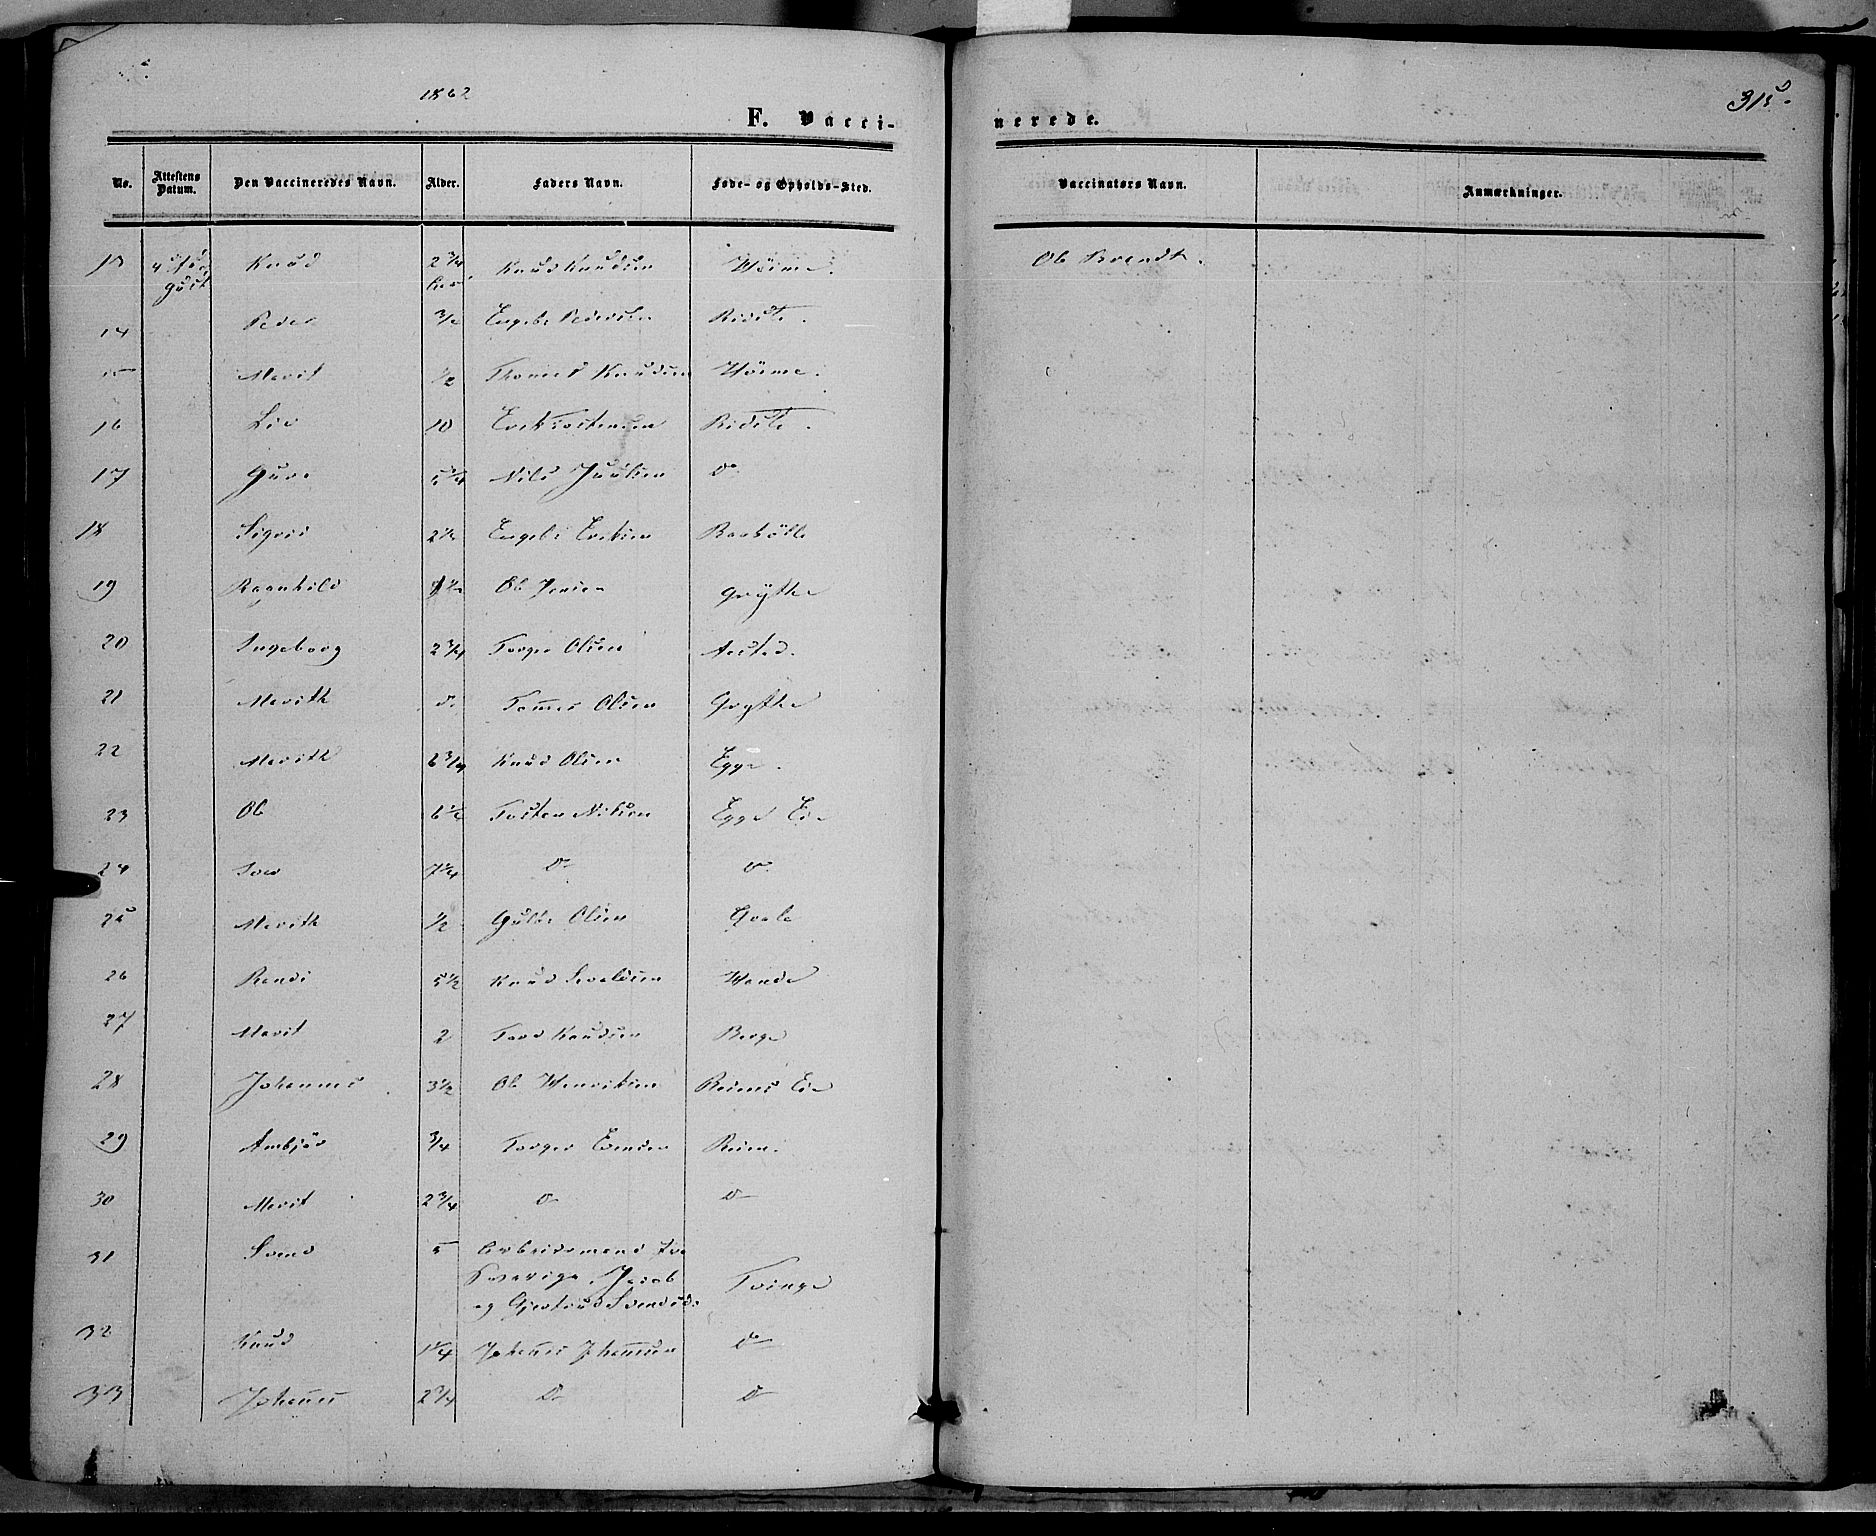 1862
315.
F. Vacci-
nerede.
No. Attestens Datum. Den Vaccineredes Navn. Alder. Faders Navn. Føde- og Opholds-Sted. Vaccinators Navn. Anmærkninger.
13 4 Au- Knud 2 3/4 Knud Knudsen Høime. Ol Brandt.
gust
14 Peder 3/4 Engebr Pedersen Ridste.
15 Marit 1/2 Thomes Knudsen Høime.
16 Liv 10 Erik Tostensen Ridste.
17 Guro 5 3/4 Nils Juulsen Do
18 Sigrid 2 1/2 Engebr Eriksen
19 Ragnhild 1/2 Ol Jensen Grytte
20 Ingeborg 2 3/4 Torger Olsen
21 Marith Do Tommes Olsen Grytte
22 Marith 6 3/4 Knud Olsen Egge.
23 Ol 6 1/2 Tosten Nilsen Egge Eie
24 Iver 7 1/4 Do Do
25 Marith 1/2 Gulbr Olsen
26 Randi 5 1/2 Knud Haande
27 Marit 2 Tord Knudsen Berge
28 Johannes 3 1/2 Ol Henriksen Reins Eie
29 Ambjør 3/4 Torger Evensen Rein.
30 Marit 2 3/4 Do Do
31 Svend 5 Arbeidsmand fra
Sverige, Jacob Tvinge
og Gjertrud Svendsd.
32 Knud 1 1/4 Johanes Johannsen Do
33 Johanes 2 3/4 Do Do